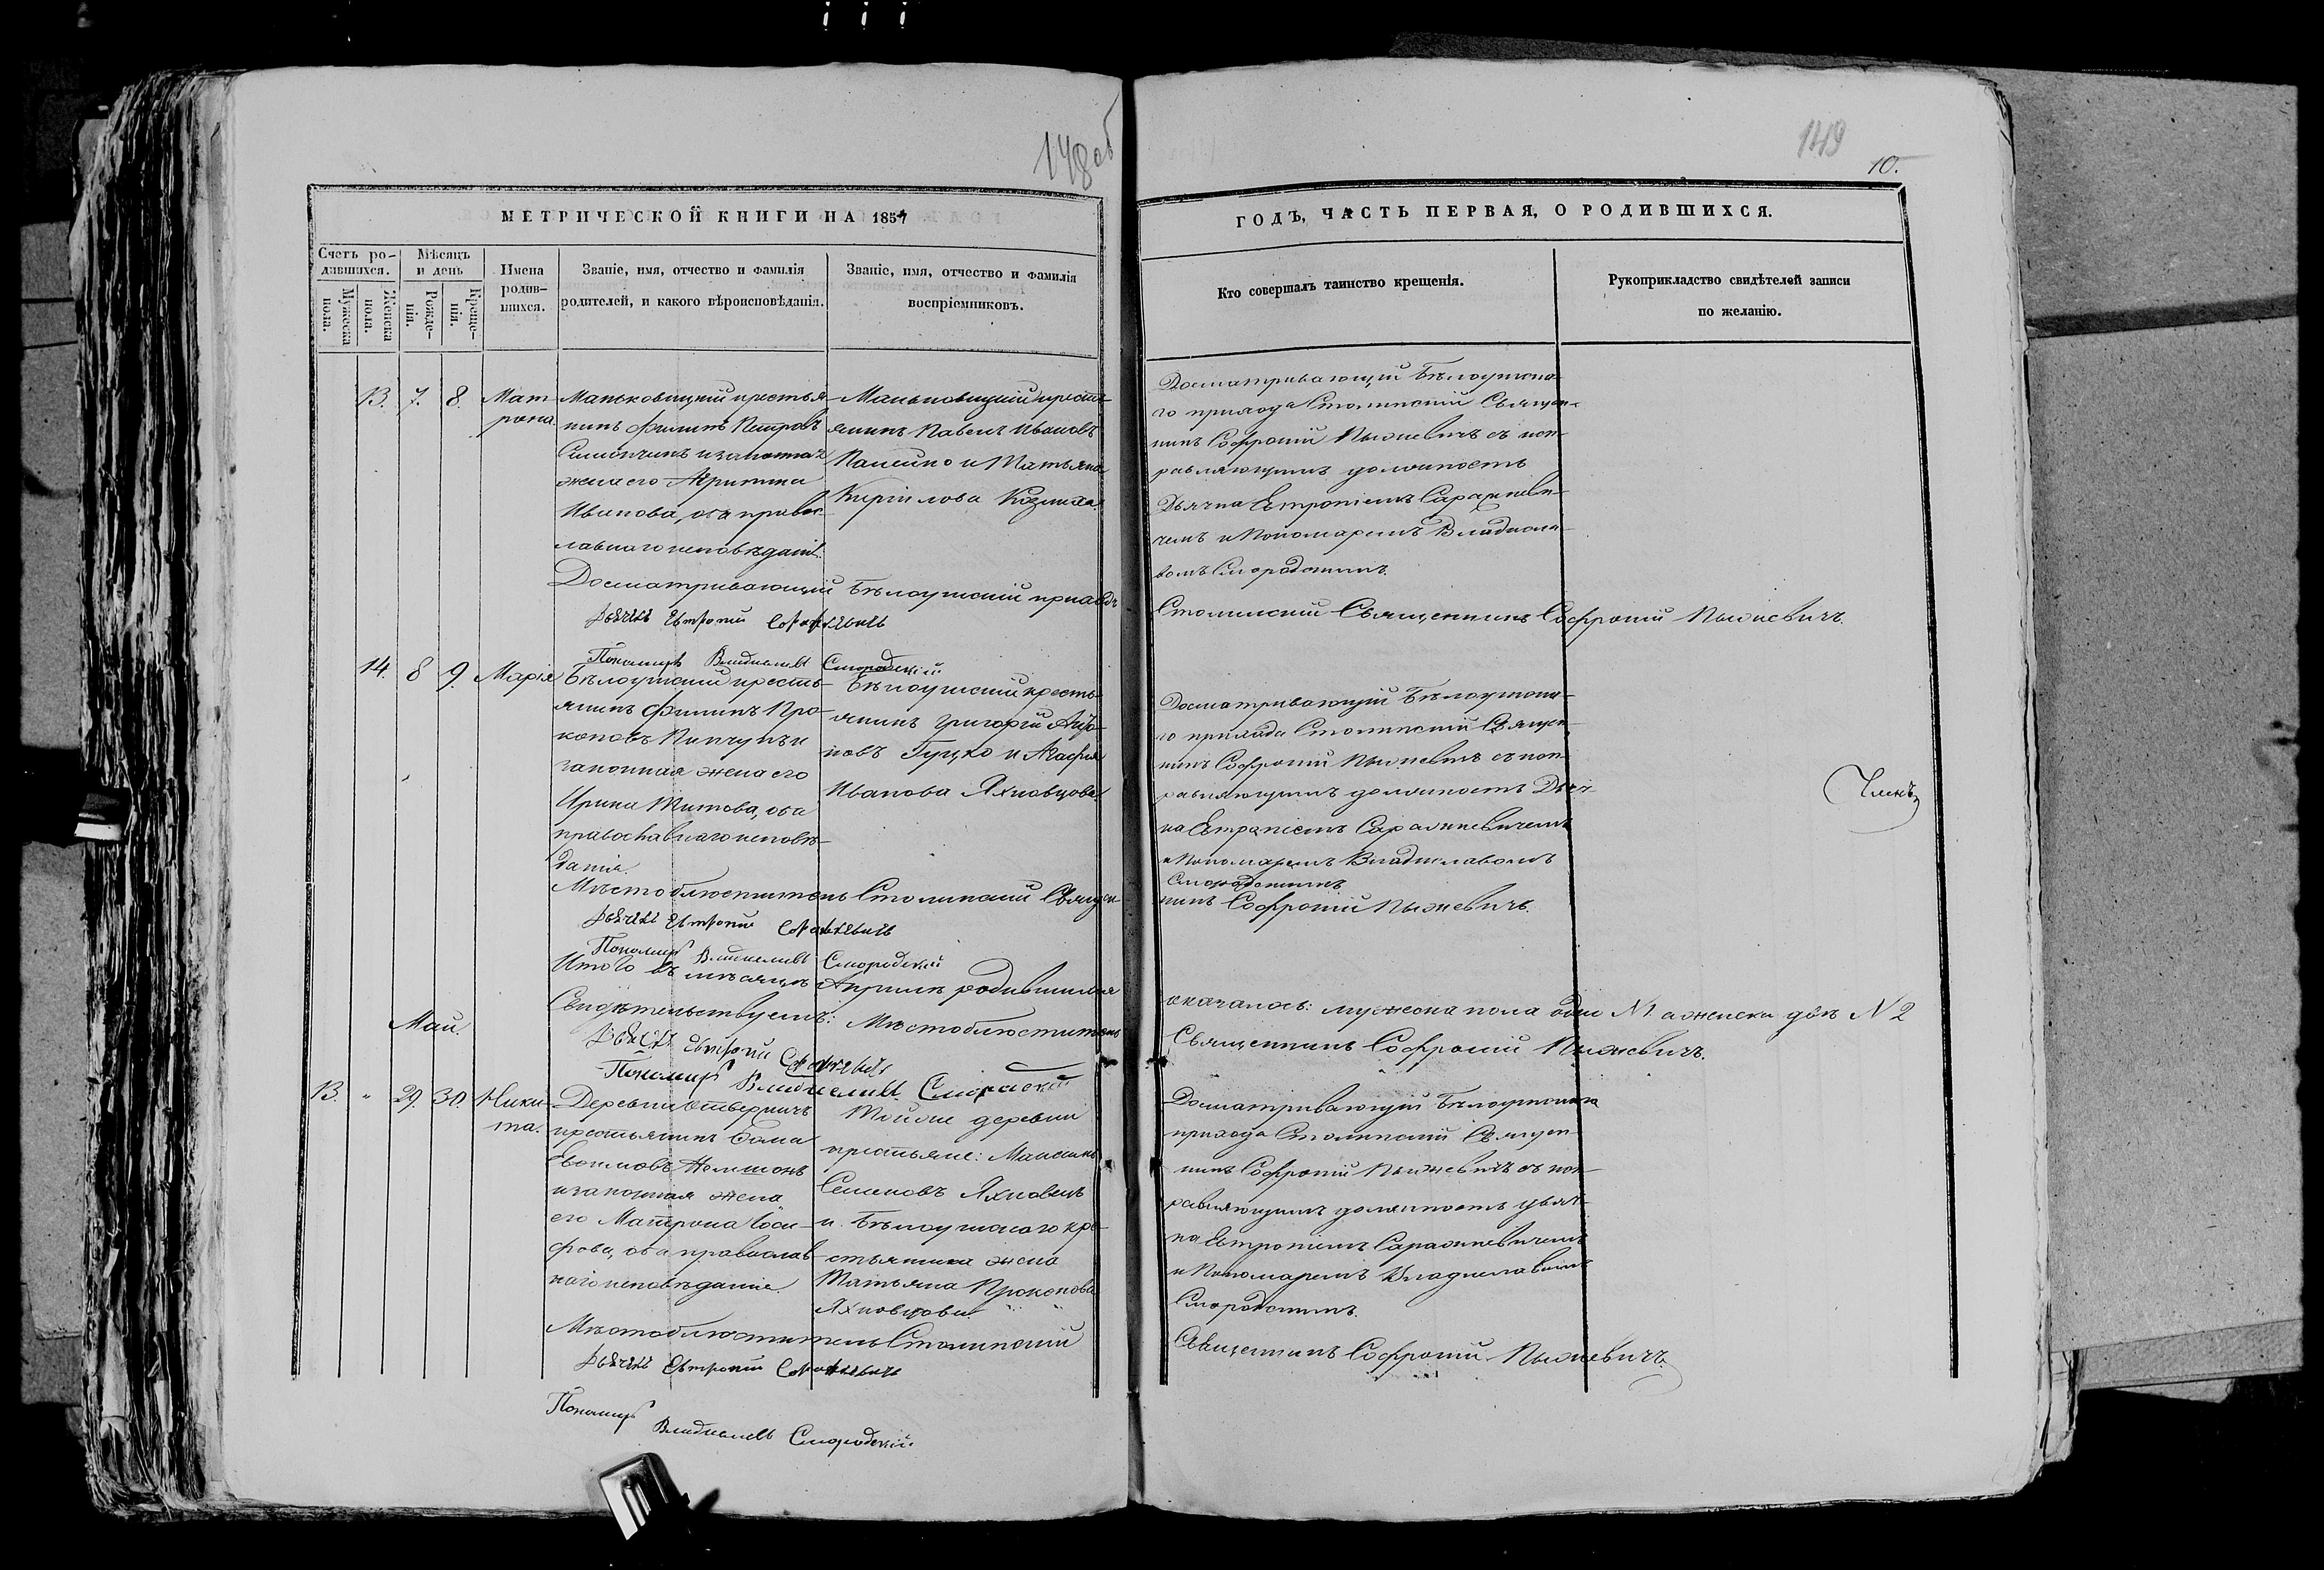 148 об
149
10.
МЕТРИЧЕСКОЙ КНИГИ НА 1857
ГОДЪ, ЧАСТЬ ПЕРВАЯ, О РОДИВШИХСЯ.
Счетъ ро-
дившихся.
Мужеска
пола.
Женска
пола.
Мѣсяцъ
и день
Рожде-
нія.
Креще-
нія.
Имена
родив-
шихся.
Званіе, имя, отчество и фамилія
родителей, и какого вѣроисповѣданія.
Званіе, имя, отчество и фамилія
воспріемниковъ.
Кто совершалъ таинство крещенія.
Рукоприкладство свидѣтелей записи
по желанію.
13. 7. 8.
Мат
рона
Маньковицкій крестья-
нинъ Филипъ Петровъ
и законная
жена его Агрипина
Иванова, оба правос-
лавнаго исповѣданія.
Маньковицкій кресть-
янинъ Павелъ Ивановъ
и Татьяна
Киріилова
Досматривающій Бѣлоушска-
го прихода Столинскій Священ-
никъ Софроній Пыжевичъ съ исп-
равляющимъ должность
Дьячка Евтропіемъ Саражкеви-
чемъ и Пономаремъ Владисла-
вомъ Смородскимъ.
Досматривающій Бѣлоушскій приходъ
Столинскій Священникъ Софроній Пыжевичъ.
Дьячекъ Евтропій Саражкевичъ
Пономарь Владиславъ Смородскій
14. 8 9.
Марія
Бѣлоушскій кресть-
янинъ Филипъ Про-
коповъ Пинчукъ и
законная жена его
Ирина Титова, оба
православнаго исповѣ-
данія.
Бѣлоушскій кресть-
янинъ Григорій
Гуцко и Агафія
Иванова Яхновцова.
Досматривающій Бѣлоушска-
го прихода Столинскій Священ-
никъ Софроній Пыжевичъ съ исп-
равляющимъ должность Дьяч-
ка Евтропіемъ Саражкевичемъ
и Пономаремъ Владиславомъ
Смородскимъ
Членъ
Мѣстоблюститель Столинскій Священ-
никъ Софроній Пыжевичъ.
Дьячекъ Евтропій Саражкевичъ
Пономарь Владиславъ Смородскій
Итого въ мѣсяцѣ Апрѣлѣ родившихся
оказалось: мужеска пола одно №1 а женска двѣ №2
Свидѣтельствуемъ: Мѣстоблюститель
Священникъ Софроній Пыжевичъ.
Дьячекъ Евтропій Саражкевичъ
Пономарь Владиславъ Смородскій
Май.
13. " 29. 30.
Ники-
та.
Деревни
крестьянинъ
и законная жена
его Матрона Іоси-
фова, оба православ-
наго исповѣданія.
Тойже деревни
крестьяне: Максимъ
Семеновъ Яхновецъ
и Бѣлоушскаго кре-
стьянина жена
Татьяна Прокопова
Яхновцова.
Досматривающій Бѣлоушскаго
прихода Столинскій Священ-
никъ Софроній Пыжевичъ съ исп-
равляющимъ должность дьяч-
ка Евтропіемъ Саражкевичемъ
и Пономаремъ Владиславомъ
Смородскимъ.
Мѣстоблюститель Столинскій
Священникъ Софроній Пыжевичъ.
Дьячекъ Евтропій Саражкевичъ
Пономарь
Владиславъ Смородскій